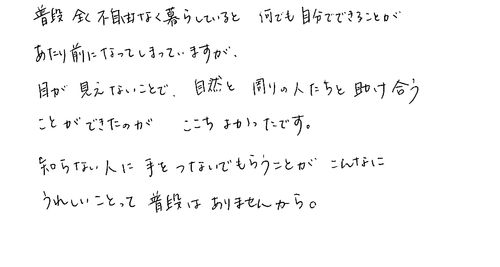 普段 全く不自由なく暮らしていると 何でも自分でできることが
あたり前になってしまっていますが、
目が見えないことで、自然と 周りの人たちと助け合う
ことができたのが ここちよかったです。
知らない人に手をつないでもらうことが こんなに
うれしいことって 普段はありませんから。